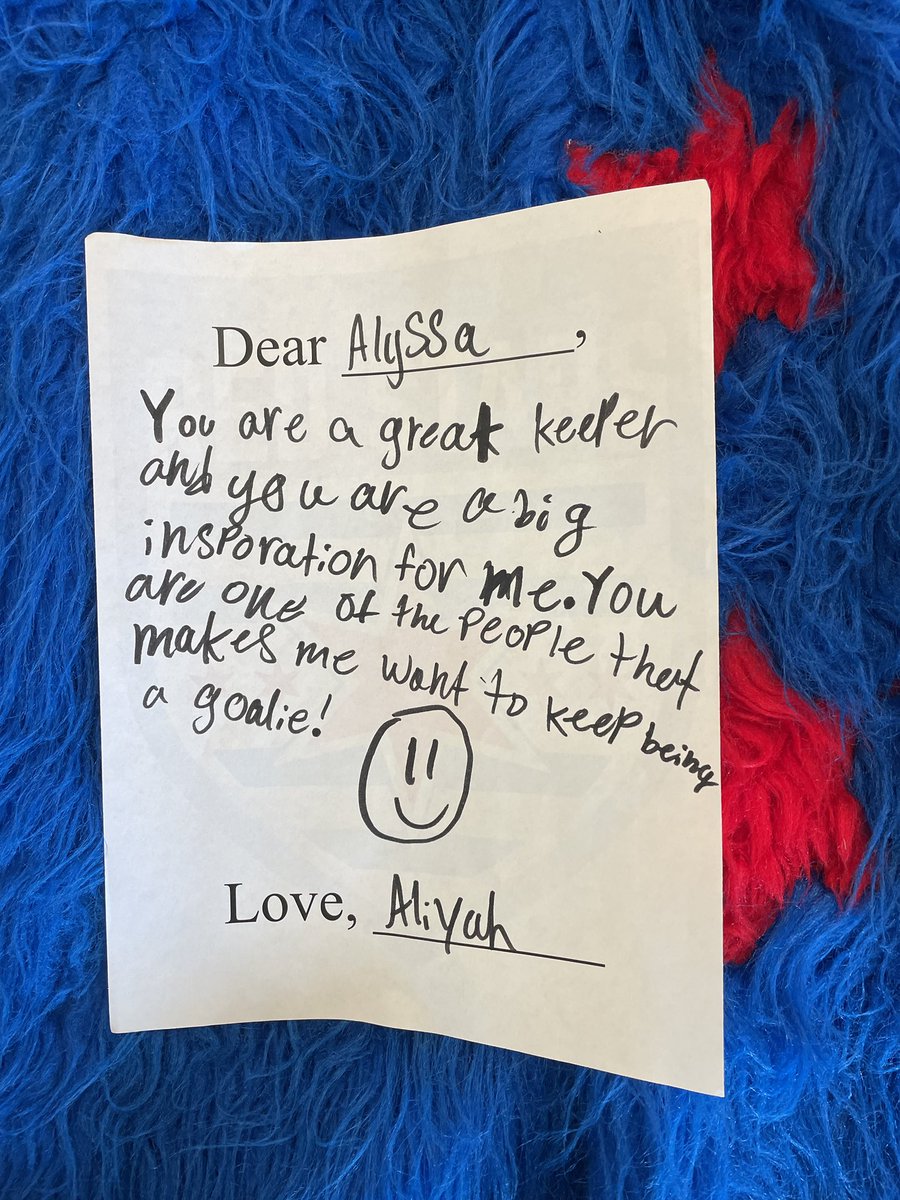 Dear Alyssa,
You are a great keeper
and you are a big
insporation for me. You
are one of the people that
makes me want to keep being
a goalie!
Love, Aliyah